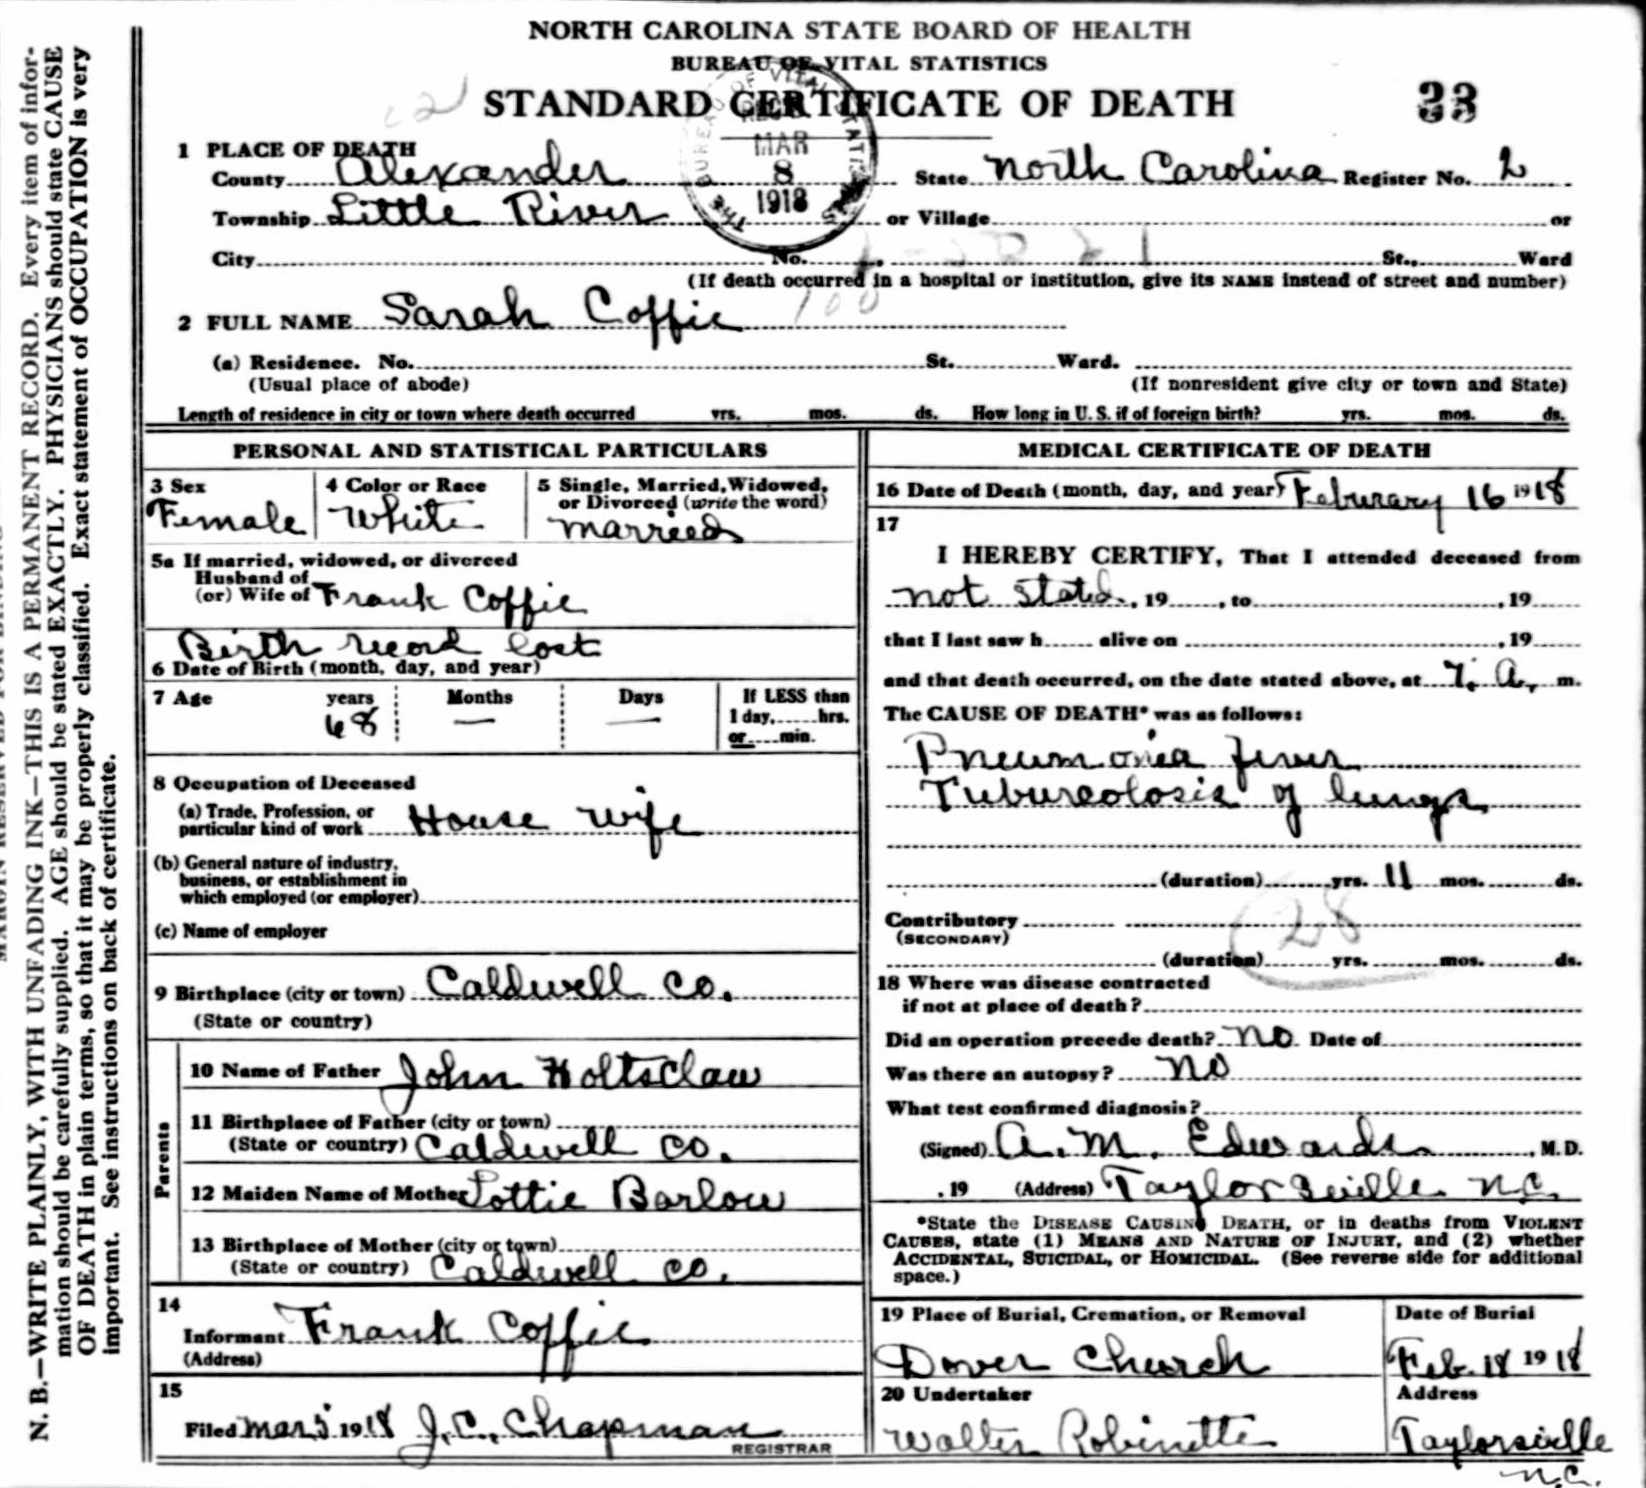 NORTH CAROLINA STATE BOARD OF HEALTH
BUREAU OF VITAL STATISTICS
STANDARD CERTIFICATE OF DEATH
33
THE BUREAU OF VITAL STATISTICS
REC'D
MAR
8
1918
1 PLACE OF DEATH
County Alexander State North Carolina Register No. 2
Township Little River or Village or
City No. St., Ward
(If death occurred in a hospital or institution, give its NAME instead of street and number)
2 FULL NAME Sarah Coffie
(a) Residence. No. St. Ward.
(Usual place of abode) (If nonresident give city or town and State)
Length of residence in city or town where death occurred yrs. mos. ds. How long in U. S. if of foreign birth? yrs. mos. ds.
PERSONAL AND STATISTICAL PARTICULARS
3 Sex 4 Color or Race 5 Single, Married, Widowed,
or Divorced (write the word)
Female White Married
5a If married, widowed, or divorced
Husband of
(or) Wife of Frank Coffie
Birth record lost
6 Date of Birth (month, day, and year)
7 Age years Months Days If LESS than
68 — — 1 day, hrs.
or min.
8 Occupation of Deceased
(a) Trade, Profession, or
particular kind of work House wife
(b) General nature of industry,
business, or establishment in
which employed (or employer)
(c) Name of employer
9 Birthplace (city or town) Caldwell Co.
(State or country)
Parents
10 Name of Father John Holtsclaw
11 Birthplace of Father (city or town)
(State or country) Caldwell Co.
12 Maiden Name of Mother Lottie Barlow
13 Birthplace of Mother (city or town)
(State or country) Caldwell Co.
14
Informant Frank Coffie
(Address)
15
Filed Mar 5 1918 J. C. Chapman
REGISTRAR
MEDICAL CERTIFICATE OF DEATH
16 Date of Death (month, day, and year) Feburary 16 1918
17
I HEREBY CERTIFY, That I attended deceased from
not stated, 19 , to , 19
that I last saw h alive on , 19
and that death occurred, on the date stated above, at 7. A. m.
The CAUSE OF DEATH* was as follows:
Pneumonia fever
Tuburcolosis of lungs
(duration) yrs. 11 mos. ds.
Contributory
(SECONDARY)
28
(duration) yrs. mos. ds.
18 Where was disease contracted
if not at place of death?
Did an operation precede death? No Date of
Was there an autopsy? No
What test confirmed diagnosis?
(Signed) A. M. Edwards, M. D.
, 19 (Address) Taylorsville N.C.
*State the DISEASE CAUSING DEATH, or in deaths from VIOLENT
CAUSES, state (1) MEANS AND NATURE OF INJURY, and (2) whether
ACCIDENTAL, SUICIDAL, or HOMICIDAL. (See reverse side for additional
space.)
19 Place of Burial, Cremation, or Removal Date of Burial
Dover Church Feb. 18 1918
20 Undertaker Address
Walter Robinette Taylorsville
N.C.
N. B.—WRITE PLAINLY, WITH UNFADING INK—THIS IS A PERMANENT RECORD. Every item of infor-
mation should be carefully supplied. AGE should be stated EXACTLY. PHYSICIANS should state CAUSE
OF DEATH in plain terms, so that it may be properly classified. Exact statement of OCCUPATION is very
important. See instructions on back of certificate.